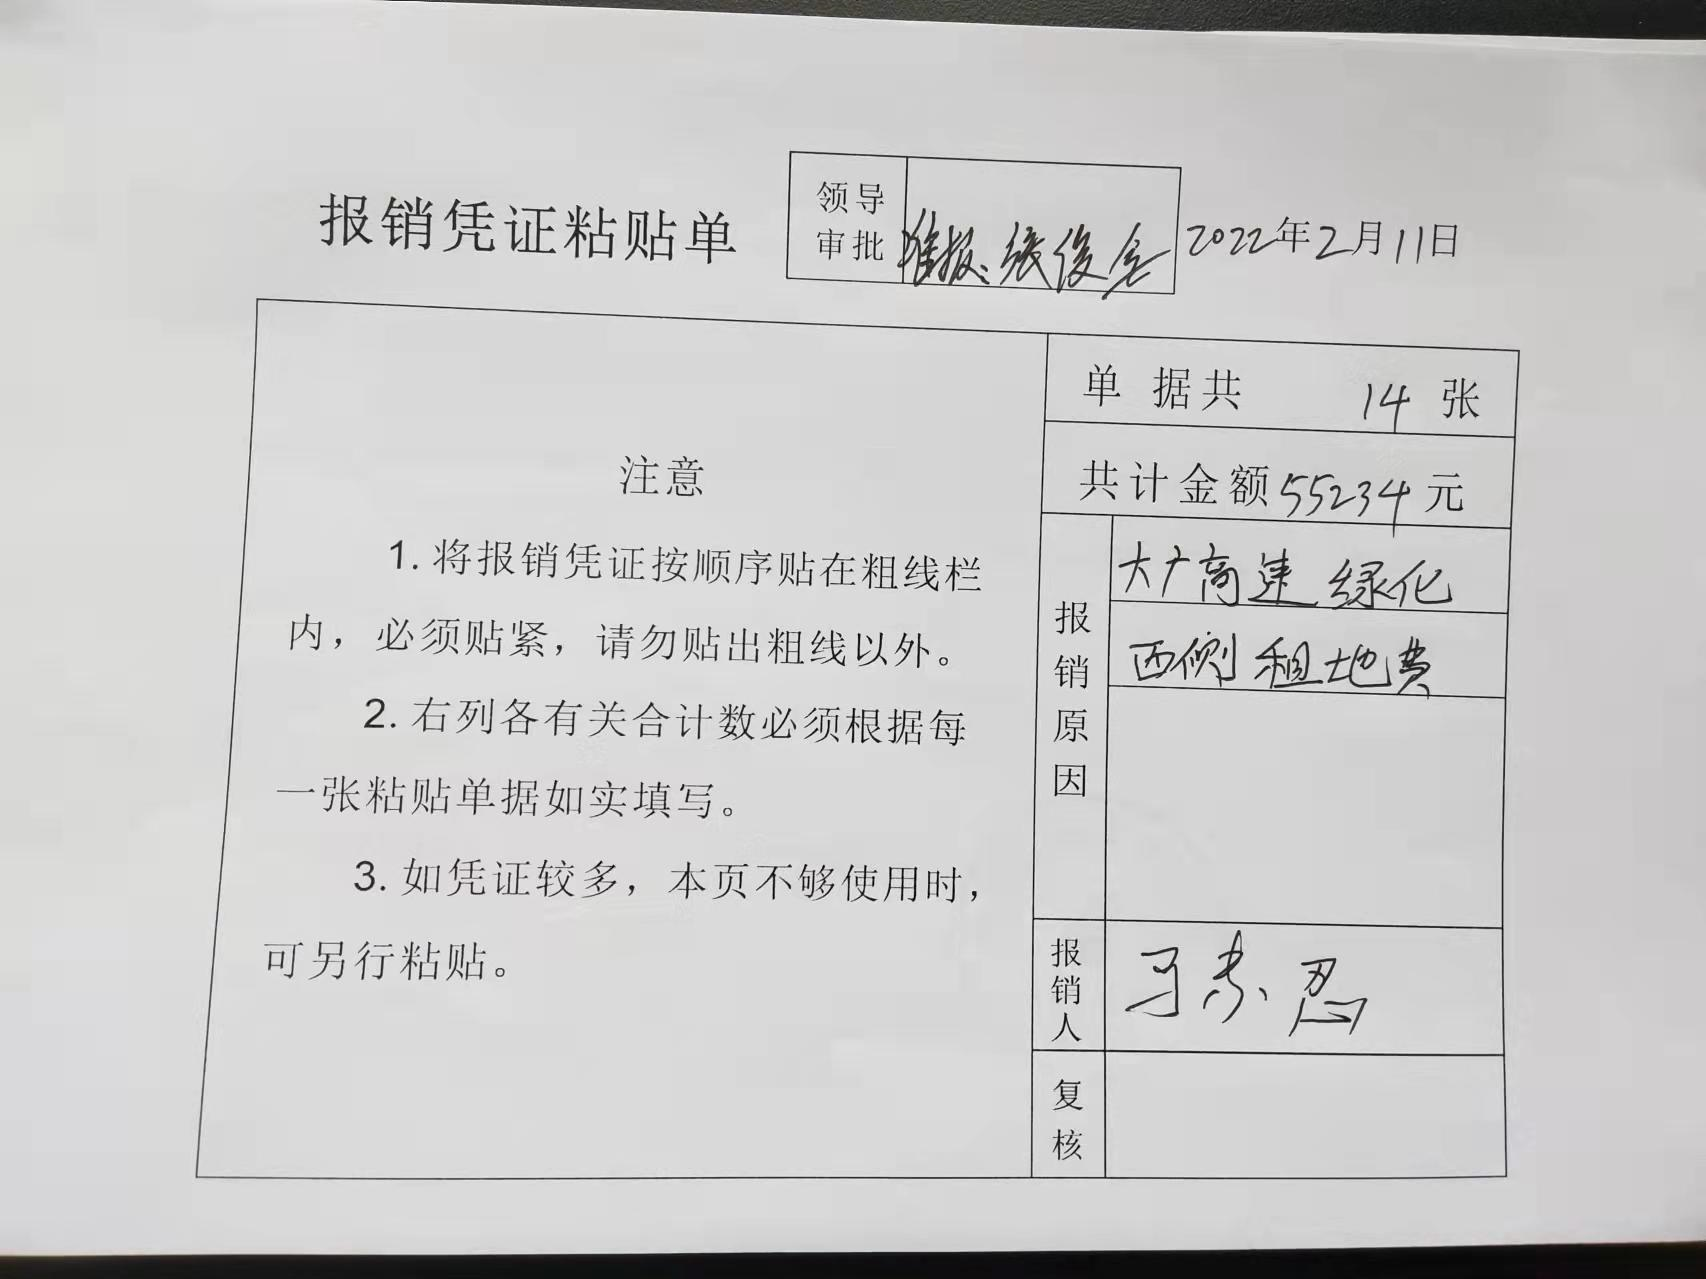 报销凭证粘贴单
领导审批
准报.张俊全
2022年2月11日
注意
1. 将报销凭证按顺序贴在粗线栏
内，必须贴紧，请勿贴出粗线以外。
2. 右列各有关合计数必须根据每
一张粘贴单据如实填写。
3. 如凭证较多，本页不够使用时，
可另行粘贴。
单据共 14 张
共计金额 55234 元
报销原因
大广高速绿化
西侧租地费
报销人
忍
复核